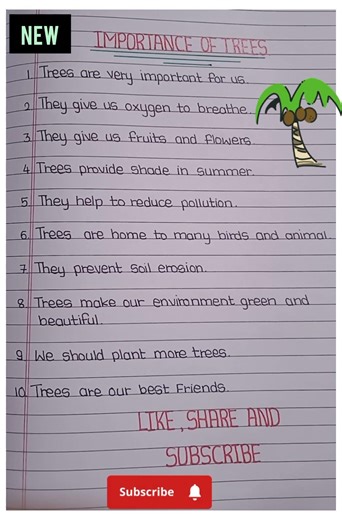 NEW
IMPORTANCE OF TREES
1 Trees are very important for us.
2 They give us oxygen to breathe.
3 They give us fruits and flowers.
4 Trees provide shade in summer.
5 They help to reduce pollution.
6 Trees are home to many birds and animal.
7 They prevent soil erosion.
8 Trees make our environment green and
beautiful.
9 We should plant more trees.
10 Trees are our best Friends.
LIKE, SHARE AND
SUBSCRIBE
Subscribe